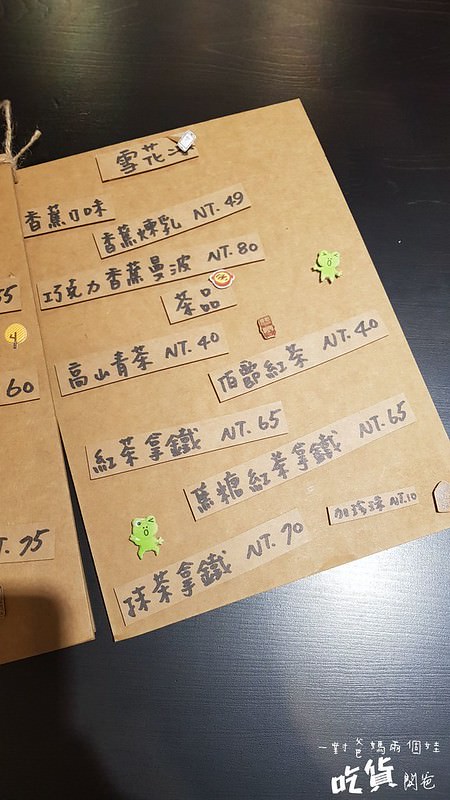 雪花冰
香蕉口味
香蕉煉乳 NT. 49
巧克力香蕉曼波 NT. 80
茶品
高山青茶 NT. 40
伯爵紅茶 NT. 40
紅茶拿鐵 NT. 65
焦糖紅茶拿鐵 NT. 65
加珍珠 NT. 10
抹茶拿鐵 NT. 70
55
4
60
T. 75
一對爸媽兩個娃
吃貨 閎爸